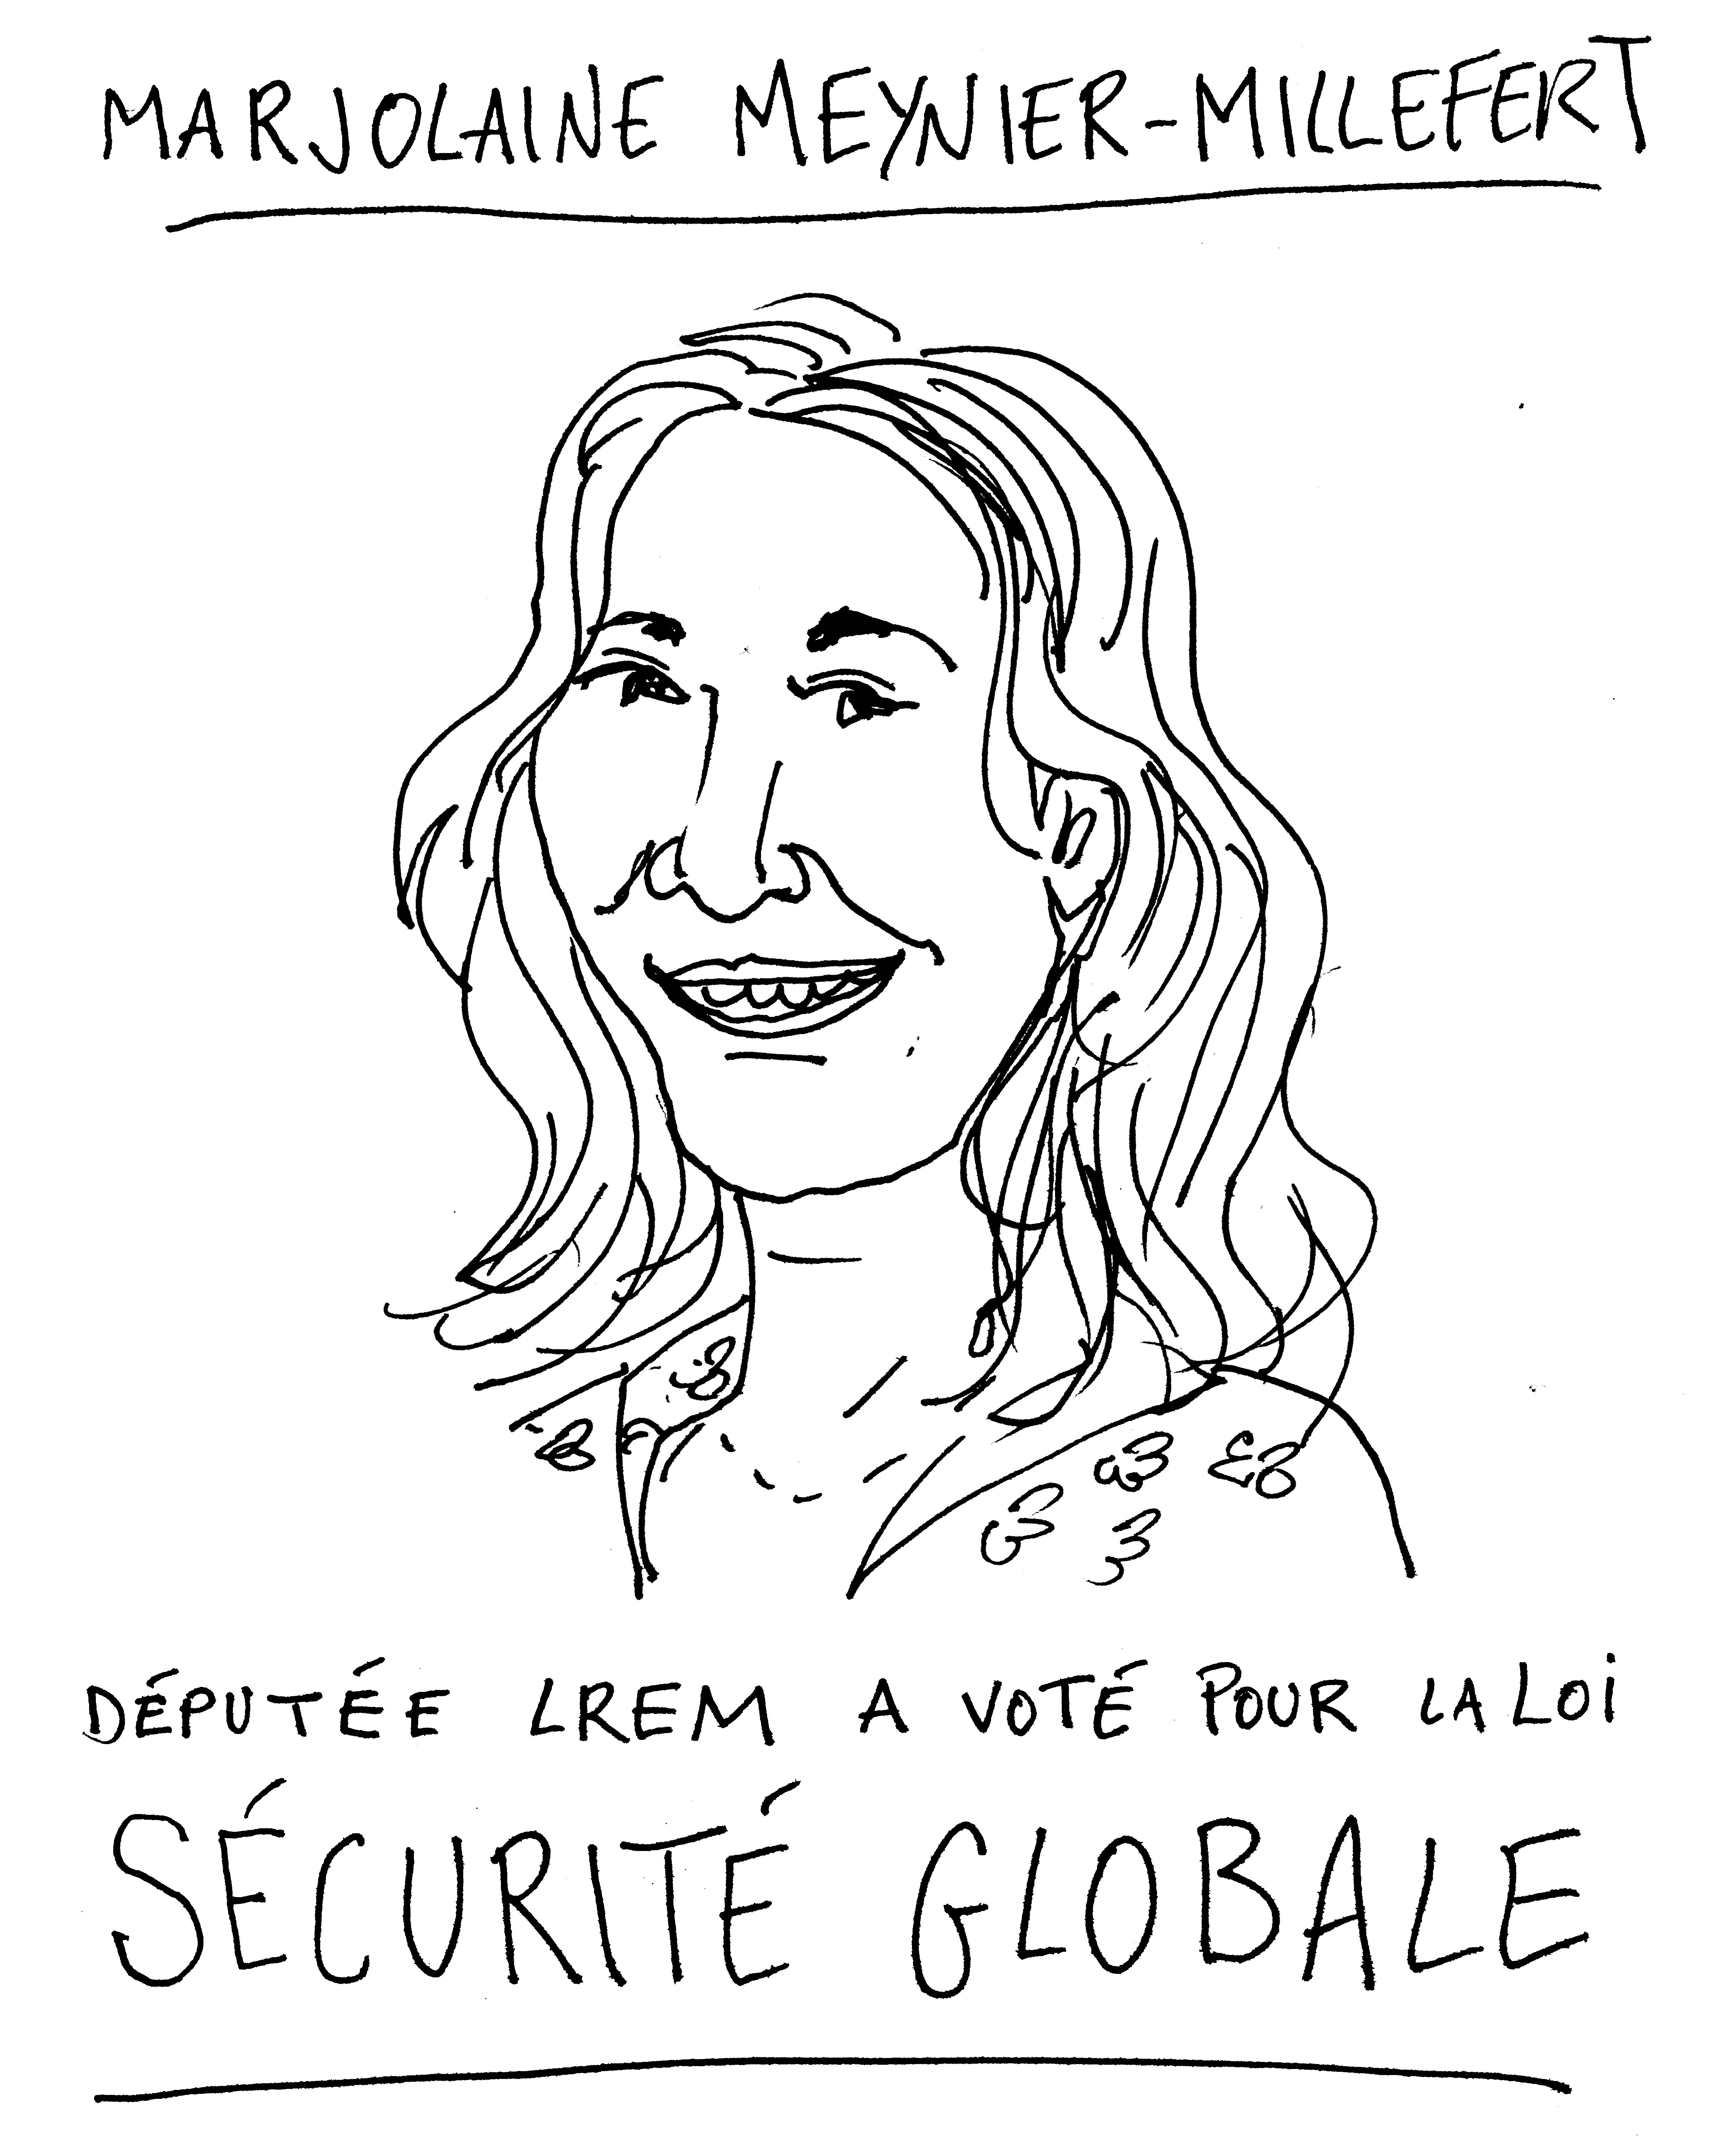 MARJOLAINE MEYNIER-MILLEFERT
DÉPUTÉE LREM A VOTÉ POUR LA LOI
SÉCURITÉ GLOBALE